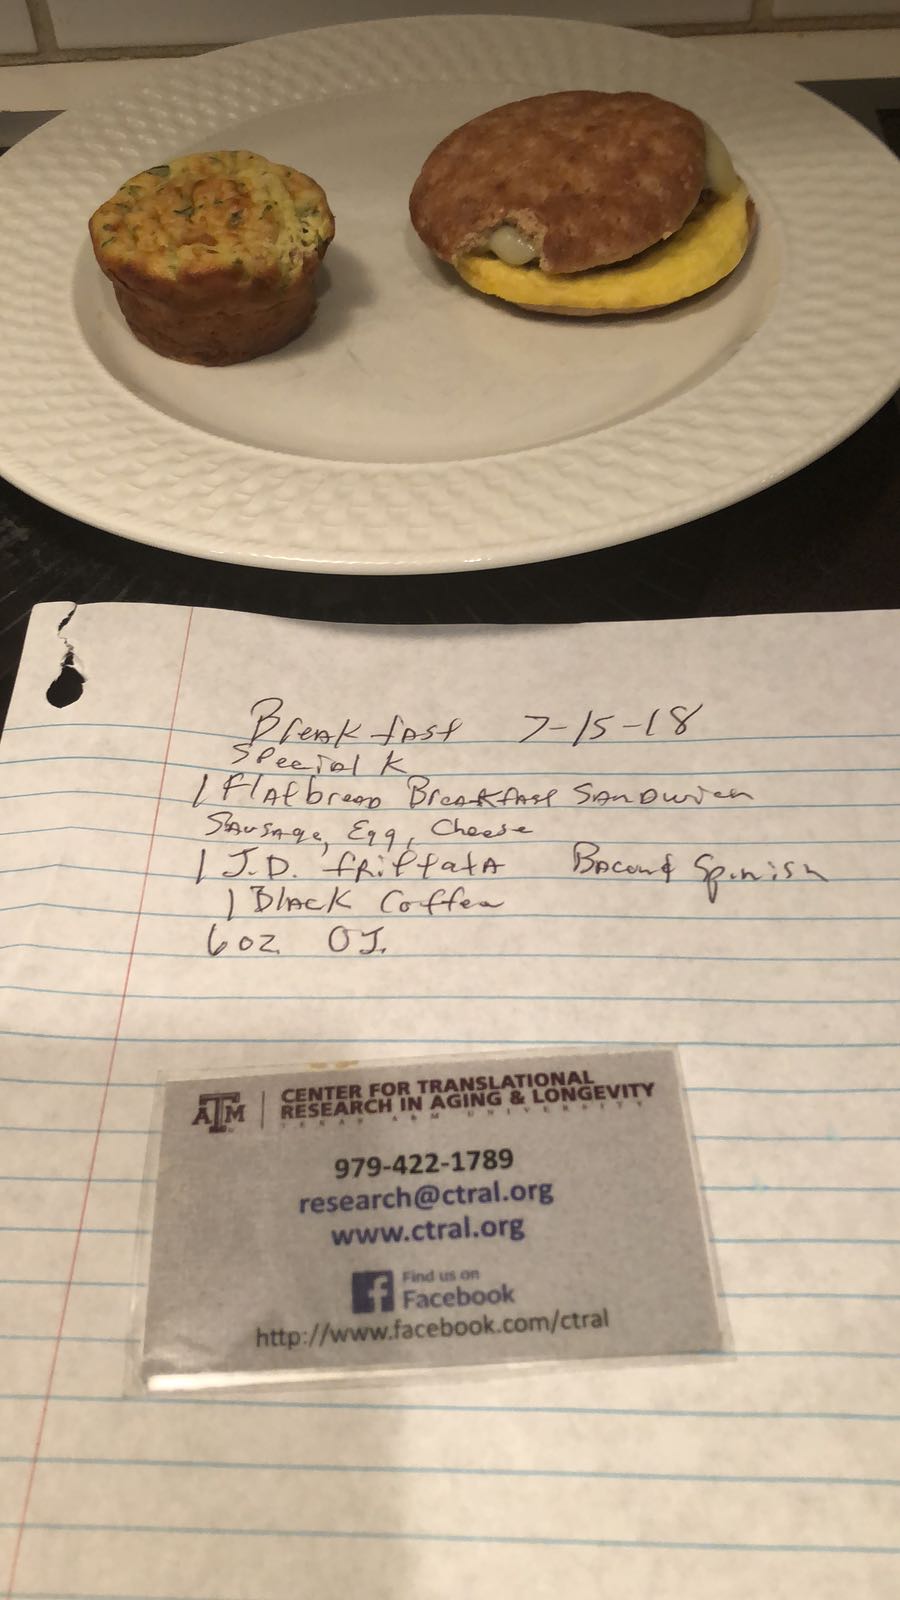 Breakfast 7-15-18
Special K
1 Flatbread Breakfast Sandwich
Sausage, Egg, Cheese
1 J.D. frittata Bacon & Spinish
1 Black Coffee
6oz. OJ.
ATM
CENTER FOR TRANSLATIONAL
RESEARCH IN AGING & LONGEVITY
TEXAS A&M UNIVERSITY
979-422-1789
research@ctral.org
www.ctral.org
f Find us on
Facebook
http://www.facebook.com/ctral